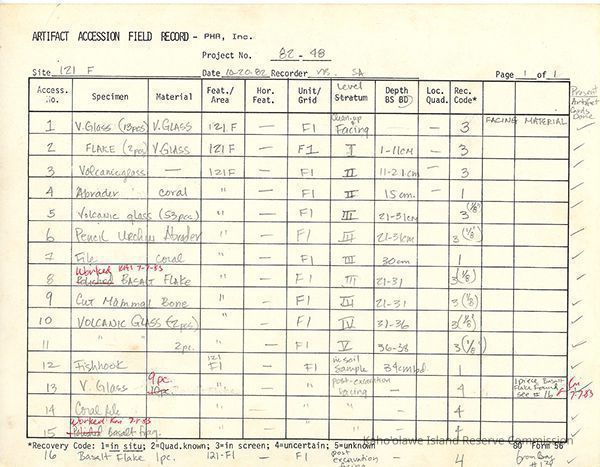 ARTIFACT ACCESSION FIELD RECORD - PHA, Inc.
Project No. 82-48
Site 121 F Date 10-20-82 Recorder SA Page 1 of 1
Access. No. Specimen Material Feat./Area Hor. Feat. Unit/Grid Level Stratum Depth BS BD Loc. Quad. Rec. Code*
Artifact Cards Done
1 V.Glass (13pcs) V.GLASS 121F — F1 Clean-up + Facing — 3 FACING MATERIAL
2 FLAKE (2pcs) V.GLASS 121F — F1 I 1-11cm — 3
3 Volcanic glass — 121F — F1 II 11-21cm — 3
4 Abrader coral " — F1 II 15cm — 1
5 Volcanic glass (53pcs.) " — F1 III 21-31cm 3 (1/8)
6 Pencil Urchin Abrader " — F1 III 21-31cm 3 (1/8)
7 File coral " — F1 III 30cm 1
Worked KM 7-7-83
8 Polished BASALT Flake " — F1 III 21-31 3 (1/8)
9 Cut Mammal Bone " — F1 III 21-31 3 (1/8)
10 VOLCANIC GLASS (2pcs) " — F1 IV 31-36 3 (1/8)
11 " " 2pc. " — F1 V 36-38 3 (1/8)
12 Fishhook 121 F1 — F1 in soil sample 34cmbd. — 1
13 V. Glass 9pc. " — " post-excavation facing — 4 1 piece Basalt Flake Found see #16 Km 7-7-83
14 Coral file " — " " — 4
Worked Km 7-7-83
15 Polished Basalt Frag. " — " " — 4
*Recovery Code: 1=in situ; 2=Quad.known; 3=in screen; 4=uncertain; 5=unknown 80 Form 56
Kaho'olawe Island Reserve Commission
16 Basalt Flake 1pc. 121-F1 — F1 post excavation facing — 4 from Bag